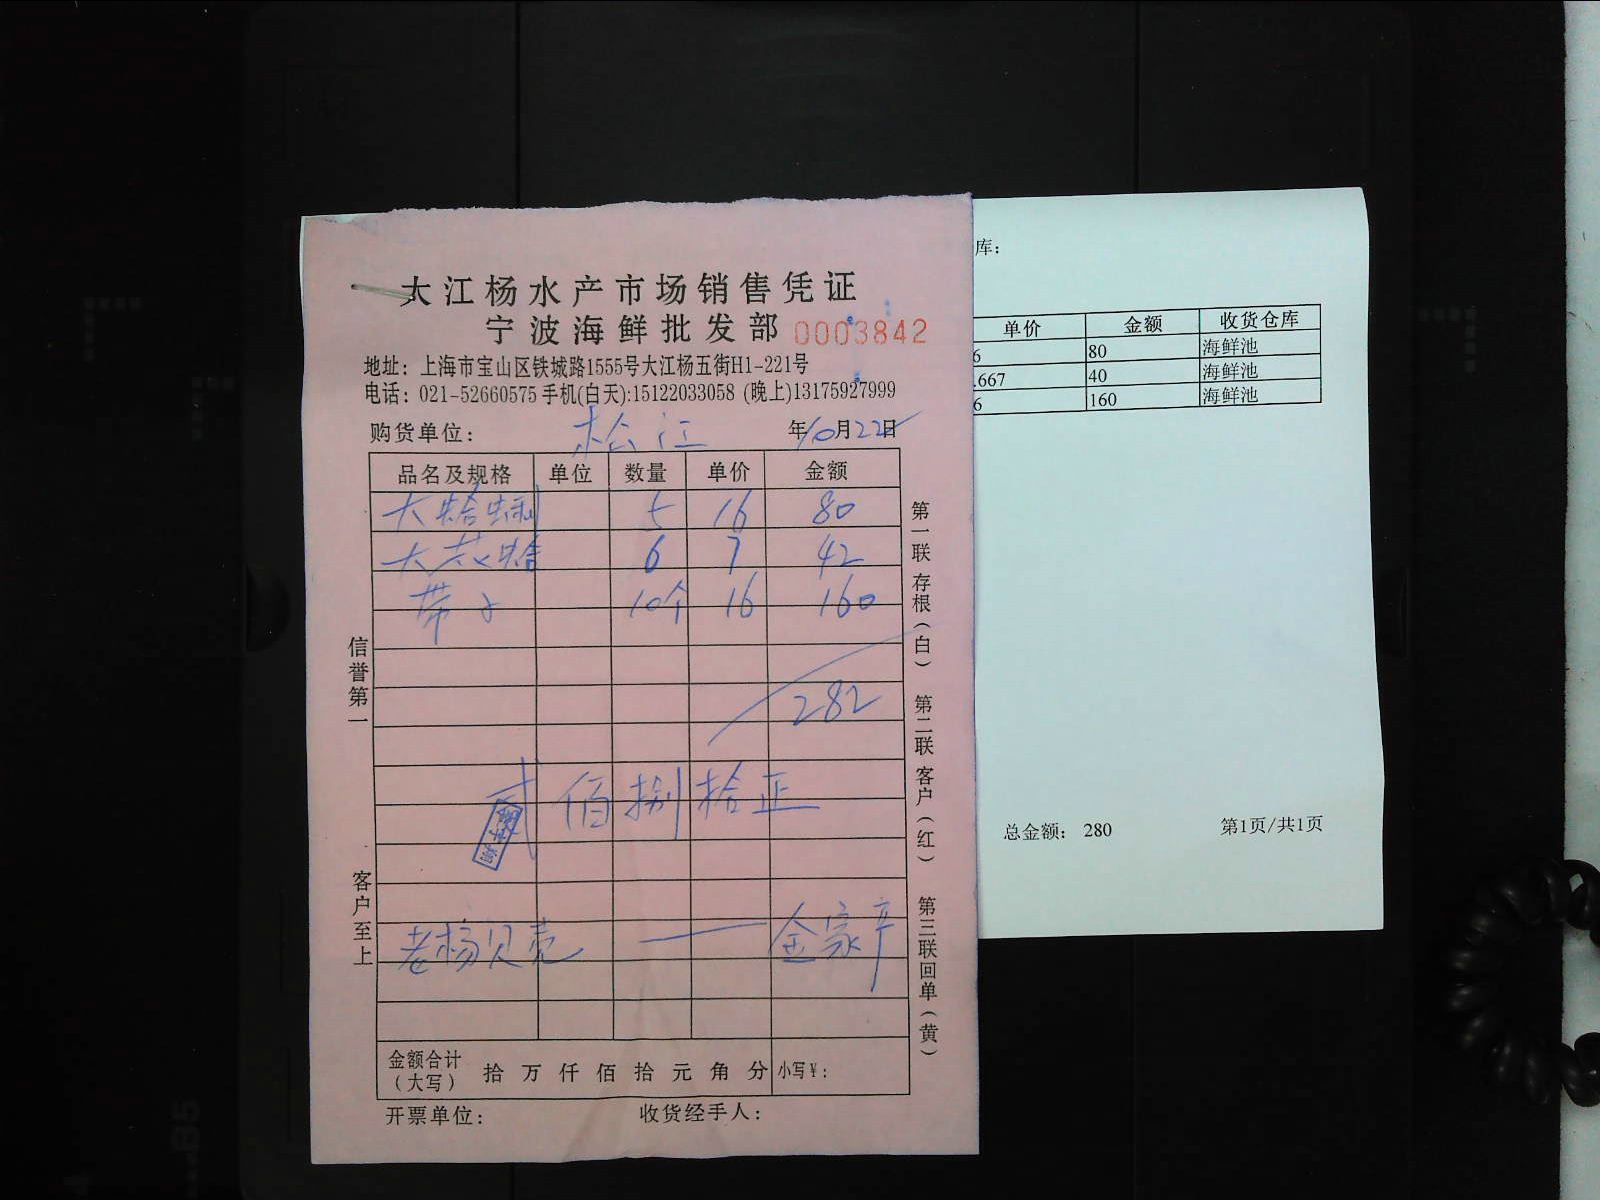 大江杨水产市场销售凭证
宁波海鲜批发部 0003842
地址：上海市宝山区铁城路1555号大江杨五街H1-221号
电话：021-52660575 手机(白天):15122033058 (晚上)13175927999
购货单位： 松江 年10月22日
品名及规格 单位 数量 单价 金额
大蛤蜊 5 16 80
大花蛤 6 7 42
带子 10个 16 160
282
贰佰捌拾正
老杨贝壳 — 金家产
金额合计（大写） 拾 万 仟 佰 拾 元 角 分 小写¥：
开票单位： 收货经手人：
信誉第一
客户至上
第一联存根（白） 第二联客户（红） 第三联回单（黄）
库：
单价 金额 收货仓库
6 80 海鲜池
.667 40 海鲜池
6 160 海鲜池
总金额： 280 第1页/共1页